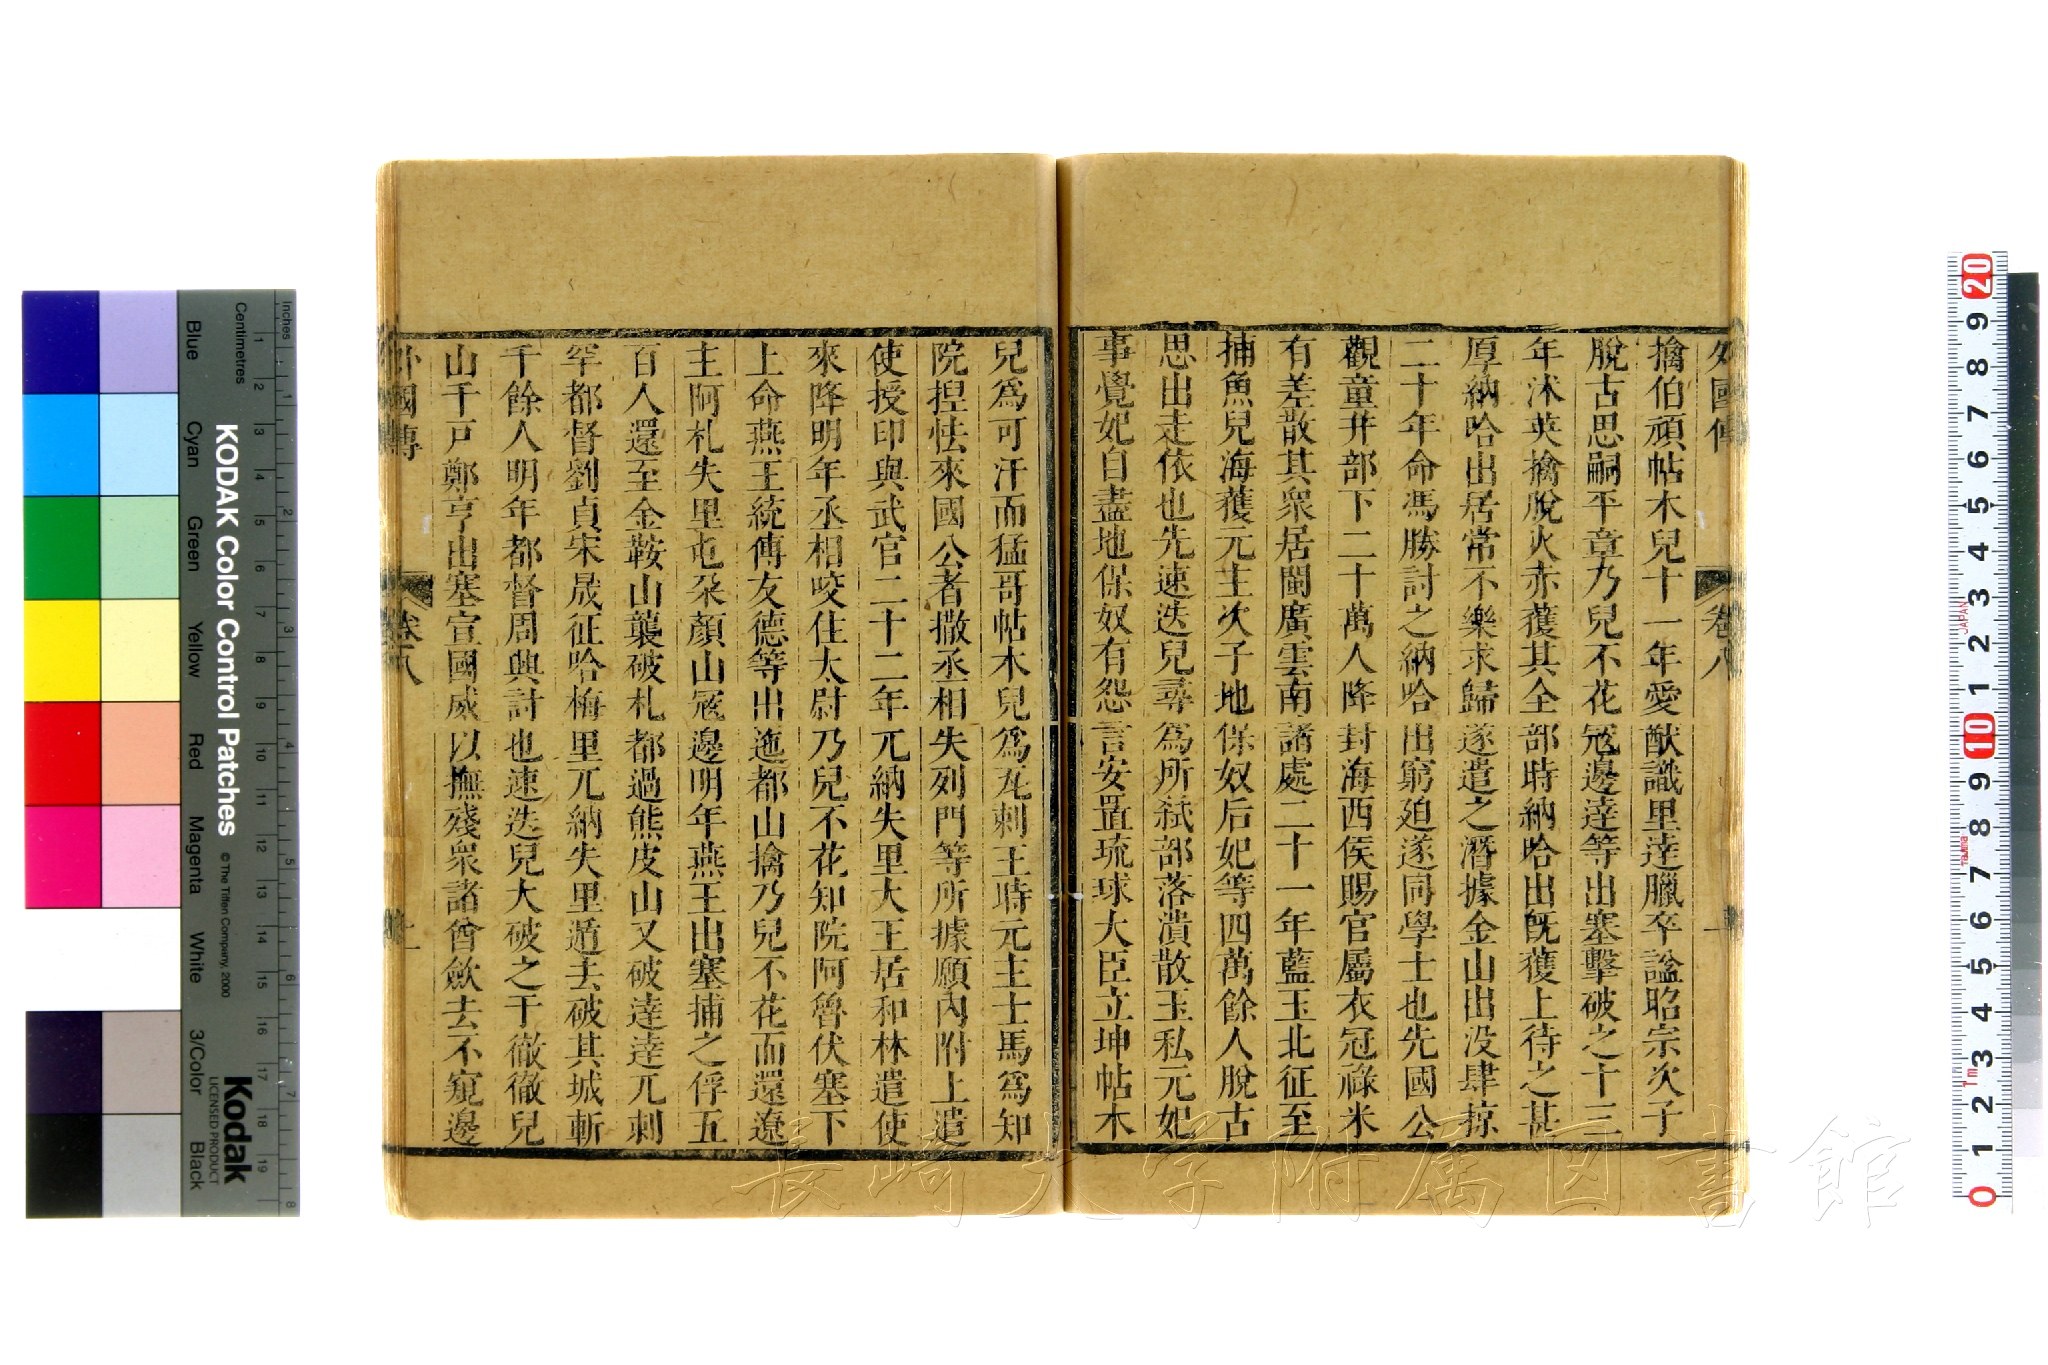 外國傳 卷八 一
擒伯頑帖木兒十一年愛猷識里達臘卒諡昭宗次子
脫古思嗣平章乃兒不花冦邊達等出塞擊破之十三
年沐英擒脫火赤獲其全部時納哈出旣獲上待之甚
厚納哈出居常不樂求歸遂遣之潛據金山出没肆掠
二十年命馮勝討之納哈出窮廹遂同學士也先國公
觀童并部下二十萬人降封海西侯賜官屬衣冠祿米
有差散其衆居閩廣雲南諸處二十一年藍玉北征至
捕魚兒海獲元主次子地保奴后妃等四萬餘人脫古
思出走依也先速迭兒尋爲所弑部落潰散玉私元妃
事覺妃自盡地保奴有怨言安置琉球大臣立坤帖木
兒爲可汗而猛哥帖木兒爲瓦剌王時元主士馬爲知
院捏怯來國公者撒丞相失列門等所據願內附上遣
使授印與武官二十二年兀納失里大王居和林遣使
來降明年丞相咬住太尉乃兒不花知院阿魯伏塞下
上命燕王統傅友德等出迤都山擒乃兒不花而還遼
主阿札失里屯朶顏山冦邊明年燕王出塞捕之俘五
百人還至金鞍山襲破札都過熊皮山又破達達兀剌
罕都督劉貞宋晟征哈梅里兀納失里遁去破其城斬
千餘人明年都督周興討也速迭兒大破之于徹徹兒
山千戸鄭亨出塞宣國威以撫殘衆諸酋斂去不窺邊
外國傳 卷八
長崎大学附属図書館
KODAK Color Control Patches
© The Tiffen Company, 2000
Kodak
LICENSED PRODUCT
Inches
Centimetres
Blue
Cyan
Green
Yellow
Red
Magenta
White
3/Color
Black
JAPAN